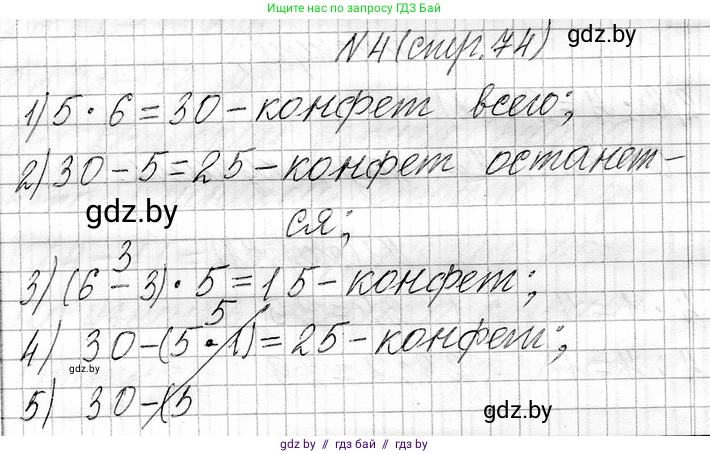 Ищите нас в поиске по фразе ГДЗ Бай
N4 (стр. 74)
gdz.by
1) 5 · 6 = 30 – конфет всего;
2) 30 – 5 = 25 – конфет останет–
gdz.by
ся;
3
3) (6 – 3) · 5 = 15 – конфет;
5
4) 30 – (5 · 1) = 25 – конфет;
gdz.by
5) 30 – (5
gdz.by
gdz.by // гдз бай // гдз.by